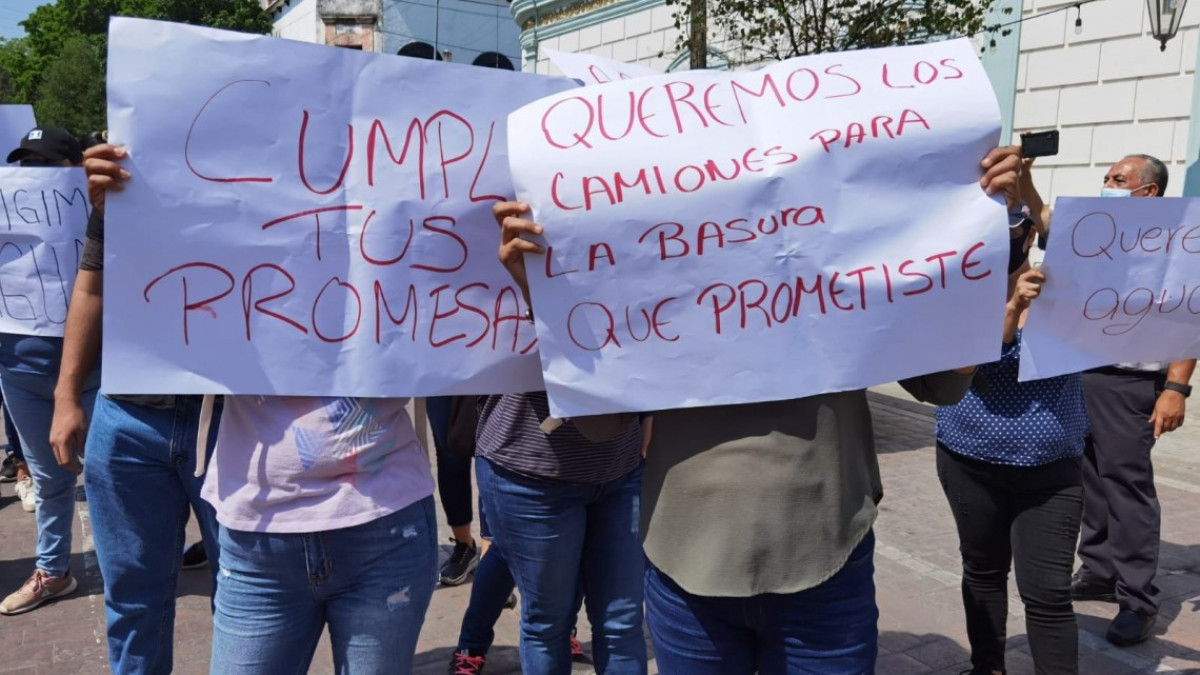 CUMPL
TUS
PROMESAS
QUEREMOS LOS
CAMIONES PARA
LA BASURA
QUE PROMETISTE
agua